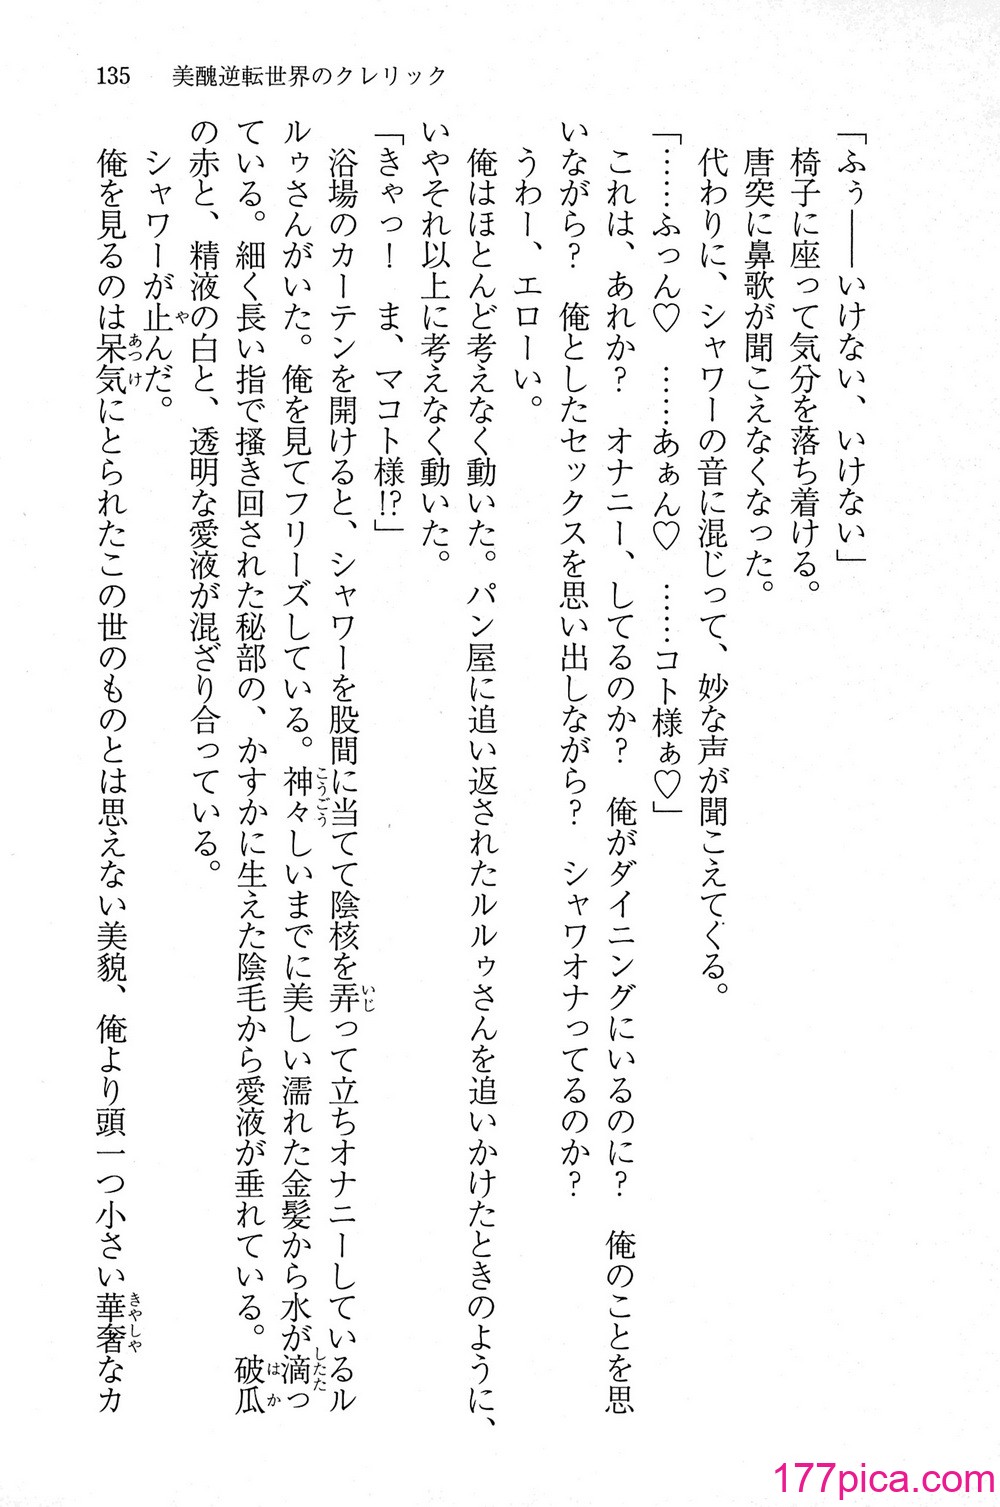 135 美醜逆転世界のクレリック
「ふぅ――いけない、いけない」
椅子に座って気分を落ち着ける。
唐突に鼻歌が聞こえなくなった。
代わりに、シャワーの音に混じって、妙な声が聞こえてくる。
「……ふっん♡　……あぁん♡　……コト様ぁ♡」
これは、あれか？　オナニー、してるのか？　俺がダイニングにいるのに？　俺のことを思
いながら？　俺としたセックスを思い出しながら？　シャワオナってるのか？
うわー、エローい。
俺はほとんど考えなく動いた。パン屋に追い返されたルルゥさんを追いかけたときのように、
いやそれ以上に考えなく動いた。
「きゃっ！　ま、マコト様!?」
浴場のカーテンを開けると、シャワーを股間に当てて陰核を弄って立ちオナニーしているル
ルゥさんがいた。俺を見てフリーズしている。神々しいまでに美しい濡れた金髪から水が滴っ
ている。細く長い指で掻き回された秘部の、かすかに生えた陰毛から愛液が垂れている。破瓜
の赤と、精液の白と、透明な愛液が混ざり合っている。
シャワーが止んだ。
俺を見るのは呆気にとられたこの世のものとは思えない美貌、俺より頭一つ小さい華奢なカ
177pica.com